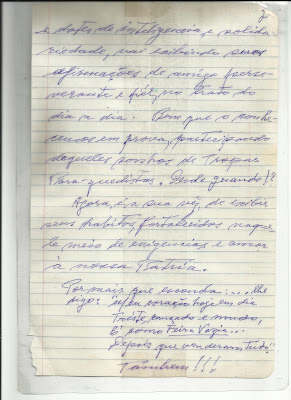 2
e dotes de inteligencia e solida
riedade, vai exibindo seus
afirmações de amigo perse-
verante e fiel no trato do
dia a dia. Bom que o conhe-
cemos em prova, participando
daqueles sonhos de Tropas
Para-quedistas. Desde quando!?
Agora, é a sua vez, de exibir
seus habitos fortalecidos naque
le meio de exigencias e amor
à nossa Patria.
Por mais que esconda:.... lhe
digo: "Meu coração hoje em dia
Triste, cansado e mudo,
É como Feira Vazia...
Depois que venderam tudo"
Também!!!